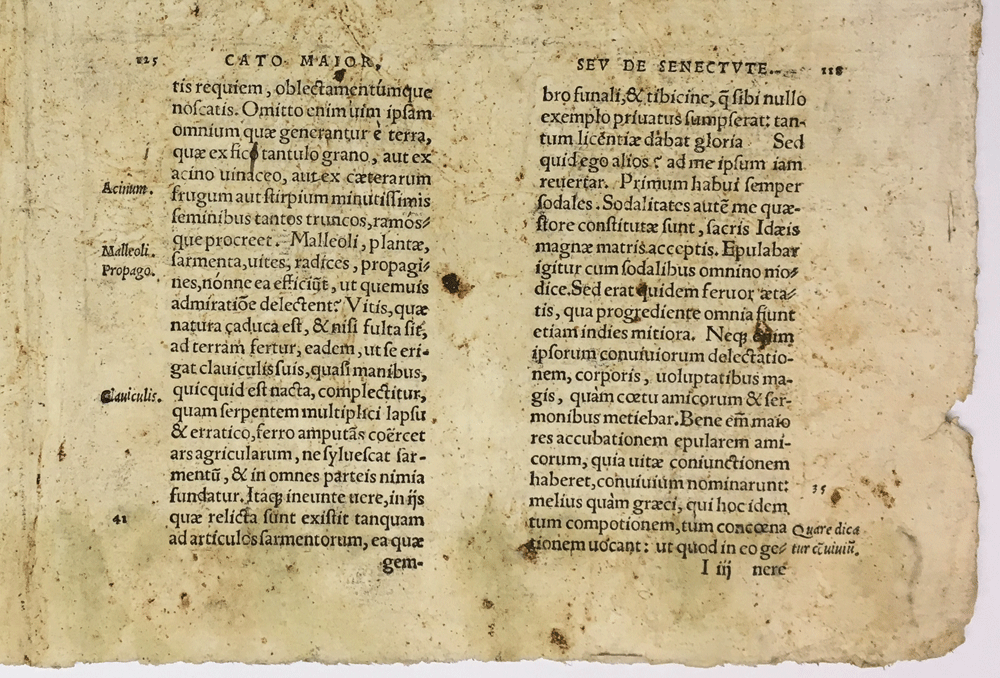 125 CATO MAIOR.
tis requiem, oblectamentúmque
noscatis. Omitto enim uim ipsam
omnium quæ generantur è terra,
quæ ex fici tantulo grano, aut ex
acino uinaceo, aut ex cæterarum
Acinum.
frugum aut stirpium minutissimis
seminibus tantos truncos, ramós-
que procreet. Malleoli, plantæ,
Malleoli.
sarmenta, uites, radices, propagi-
Propago.
nes, nónne ea efficiūt, ut quemuis
admiratiõe delectent? Vitis, quæ
natura caduca est, & nisi fulta sit,
ad terram fertur, eadem, ut se eri-
gat clauiculis suis, quasi manibus,
quicquid est nacta, complectitur,
Clauiculis.
quam serpentem multiplici lapsu
& erratico, ferro amputãs coërcet
ars agricolarum, ne syluescat sar-
mentū, & in omnes parteis nimia
fundatur. Itaq; ineunte uere, in ijs
quæ relicta sunt existit tanquam
41
ad articulos sarmentorum, ea quæ
gem-
SEV DE SENECTVTE. 118
bro funali, & tibicine, q̃ sibi nullo
exemplo priuatus sumpserat: tan-
tum licentiæ dabat gloria Sed
quid ego alios? ad me ipsum iam
reuertar. Primum habui semper
sodales. Sodalitates autẽ me quæ-
store constitutæ sunt, sacris Idæis
magnæ matris acceptis. Epulabar
igitur cum sodalibus omnino mo-
dice. Sed erat quidem feruor æta-
tis, qua progrediente omnia fiunt
etiam indies mitiora. Neq; enim
ipsorum conuiuiorum delectatio-
nem, corporis, uoluptatibus ma-
gis, quàm cœtu amicorum & ser-
monibus metiebar. Bene em̃ maio
res accubationem epularem ami-
corum, quia uitæ coniunctionem
haberet, conuiuium nominarunt:
35
melius quàm græci, qui hoc idem
tum compotionem, tum concœna
Quare dica
tionem uocant: ut quod in eo ge-
tur cõuiuiū.
I iij nere